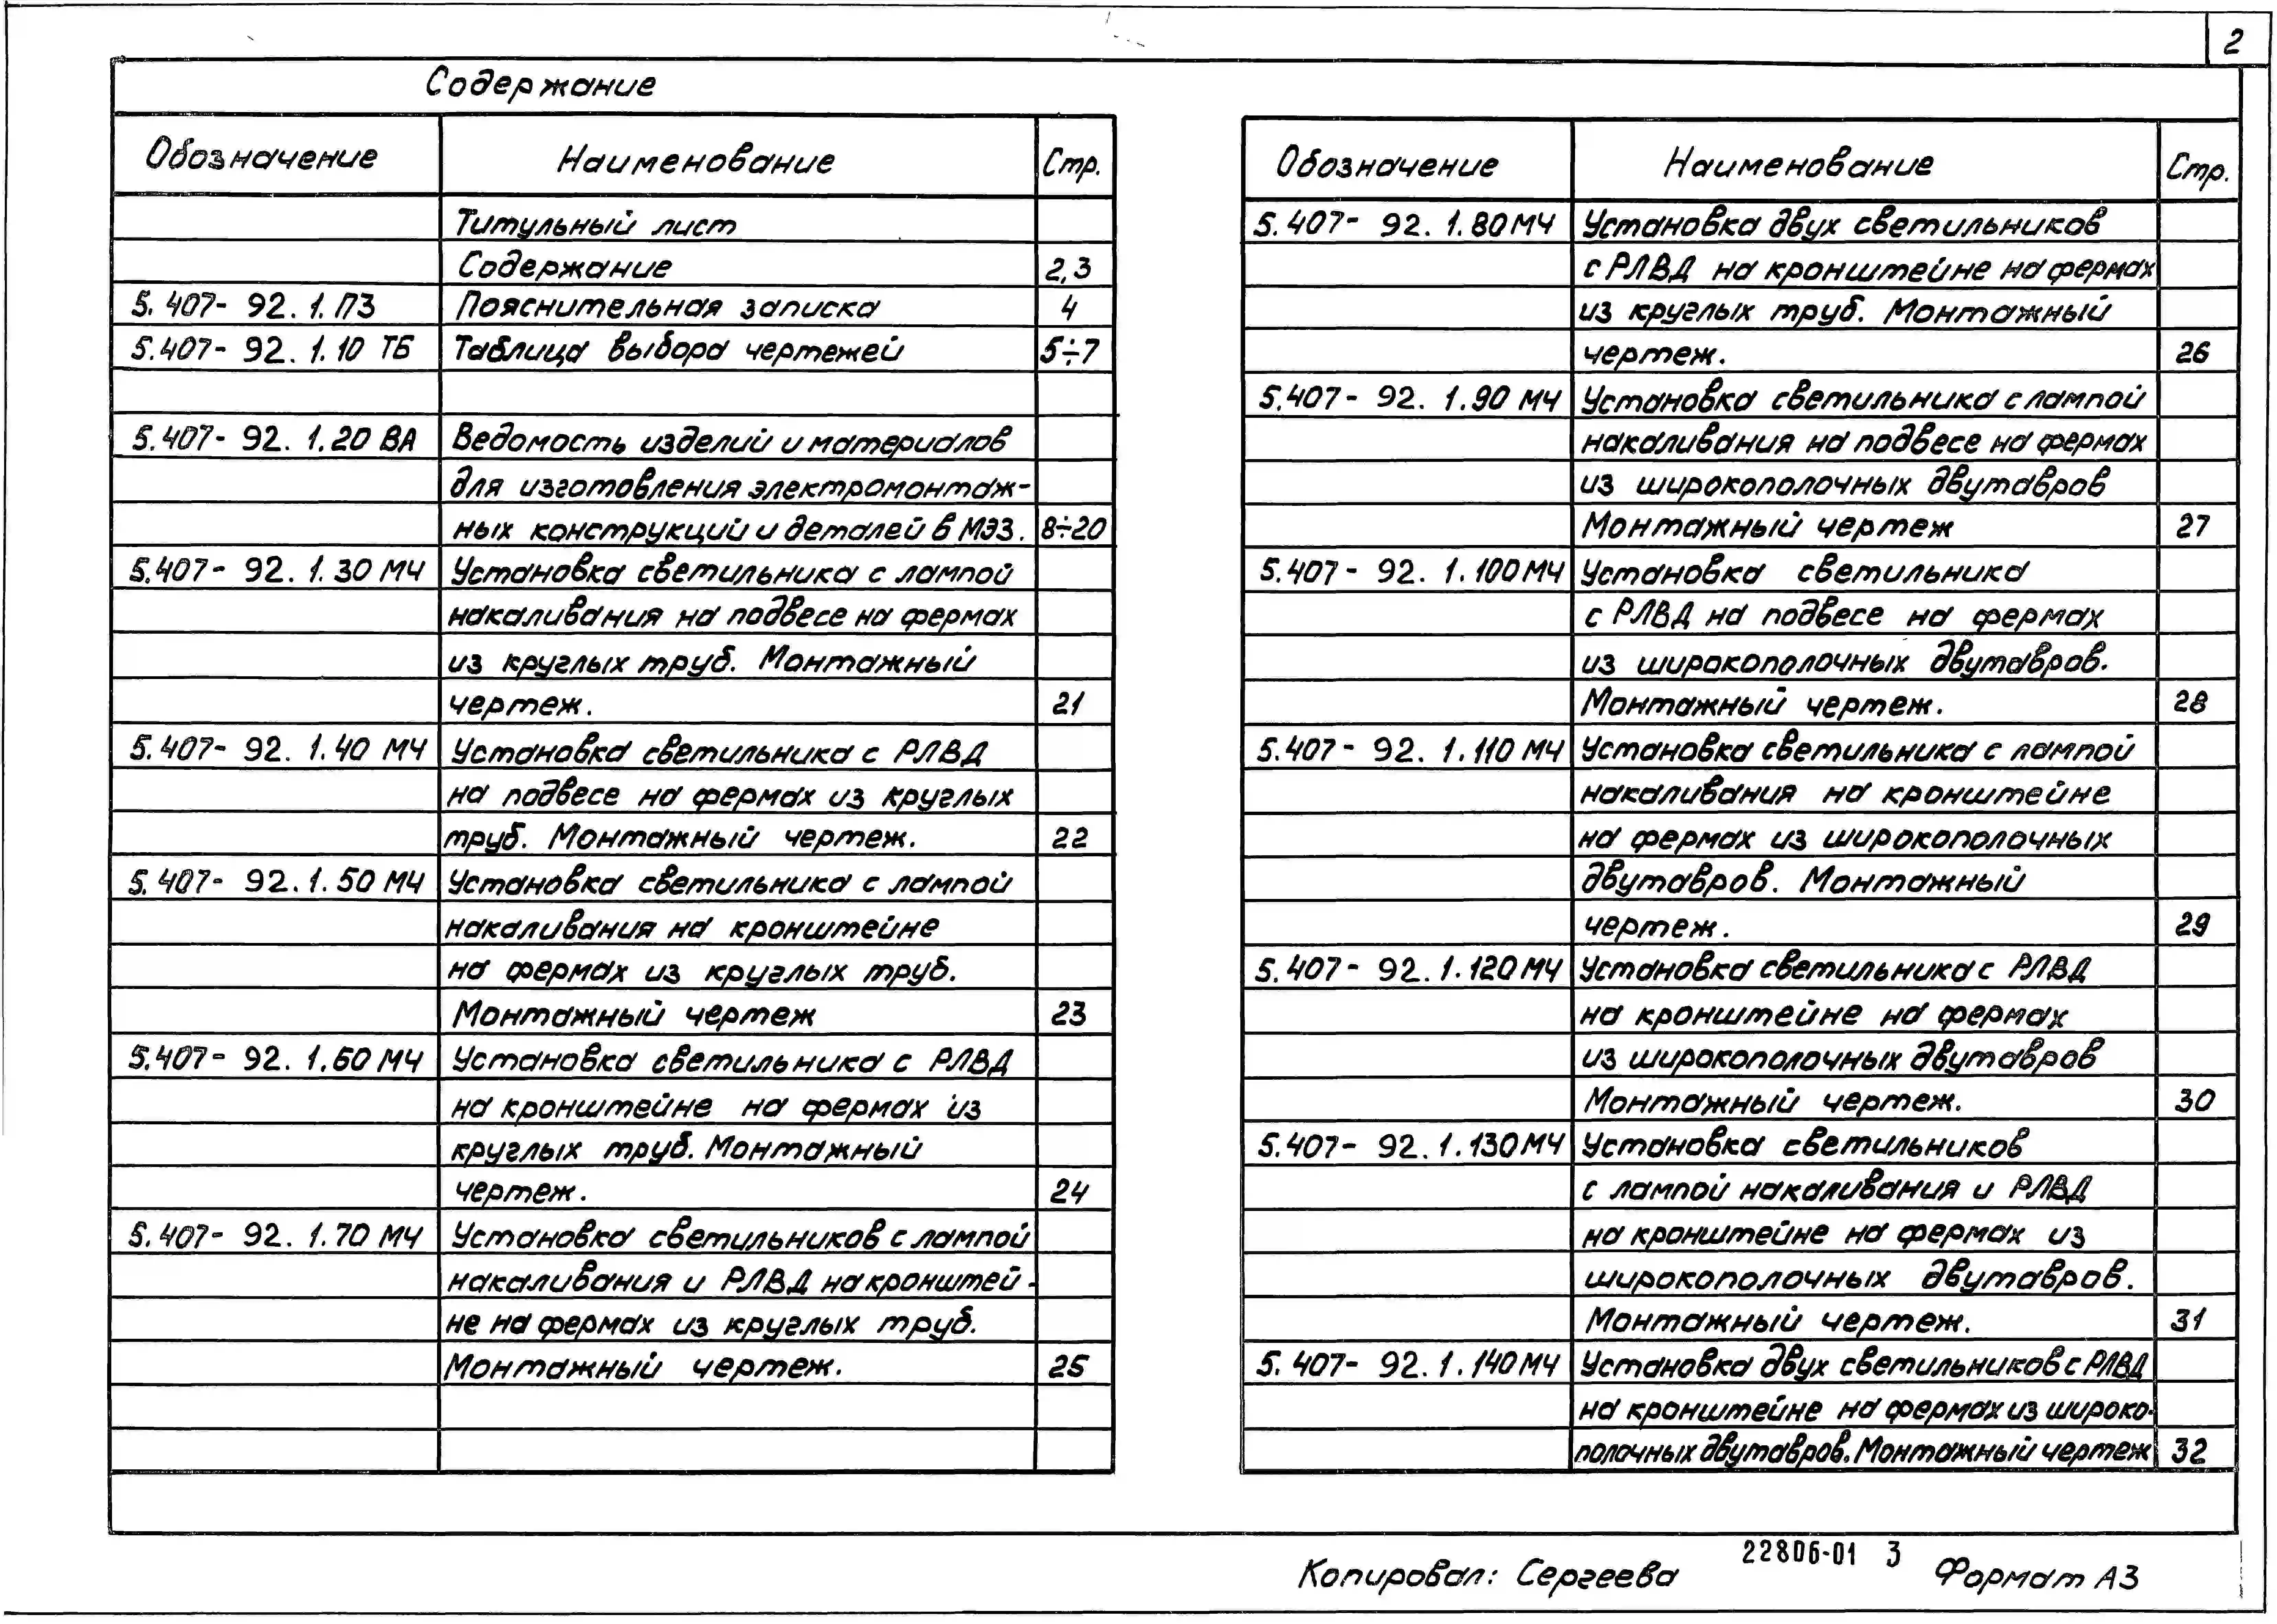 2
Содержание
Обозначение Наименование Стр.
Титульный лист
Содержание 2,3
5.407-92.1.ПЗ Пояснительная записка 4
5.407-92.1.10 ТБ Таблица выбора чертежей 5÷7
5.407-92.1.20 ВА Ведомость изделий и материалов
для изготовления электромонтаж-
ных конструкций и деталей в МЭЗ. 8÷20
5.407-92.1.30 МЧ Установка светильника с лампой
накаливания на подвесе на фермах
из круглых труб. Монтажный
чертеж. 21
5.407-92.1.40 МЧ Установка светильника с РЛВД
на подвесе на фермах из круглых
труб. Монтажный чертеж. 22
5.407-92.1.50 МЧ Установка светильника с лампой
накаливания на кронштейне
на фермах из круглых труб.
Монтажный чертеж 23
5.407-92.1.60 МЧ Установка светильника с РЛВД
на кронштейне на фермах из
круглых труб. Монтажный
чертеж. 24
5.407-92.1.70 МЧ Установка светильников с лампой
накаливания и РЛВД на кронштей-
не на фермах из круглых труб.
Монтажный чертеж. 25
Обозначение Наименование Стр.
5.407-92.1.80 МЧ Установка двух светильников
с РЛВД на кронштейне на фермах
из круглых труб. Монтажный
чертеж. 26
5.407-92.1.90 МЧ Установка светильника с лампой
накаливания на подвесе на фермах
из широкополочных двутавров
Монтажный чертеж 27
5.407-92.1.100 МЧ Установка светильника
с РЛВД на подвесе на фермах
из широкополочных двутавров.
Монтажный чертеж. 28
5.407-92.1.110 МЧ Установка светильника с лампой
накаливания на кронштейне
на фермах из широкополочных
двутавров. Монтажный
чертеж. 29
5.407-92.1.120 МЧ Установка светильника с РЛВД
на кронштейне на фермах
из широкополочных двутавров
Монтажный чертеж. 30
5.407-92.1.130 МЧ Установка светильников
с лампой накаливания и РЛВД
на кронштейне на фермах из
широкополочных двутавров.
Монтажный чертеж. 31
5.407-92.1.140 МЧ Установка двух светильников с РЛВД
на кронштейне на фермах из широко-
полочных двутавров. Монтажный чертеж 32
22806-01 3
Копировал: Сергеева Формат А3